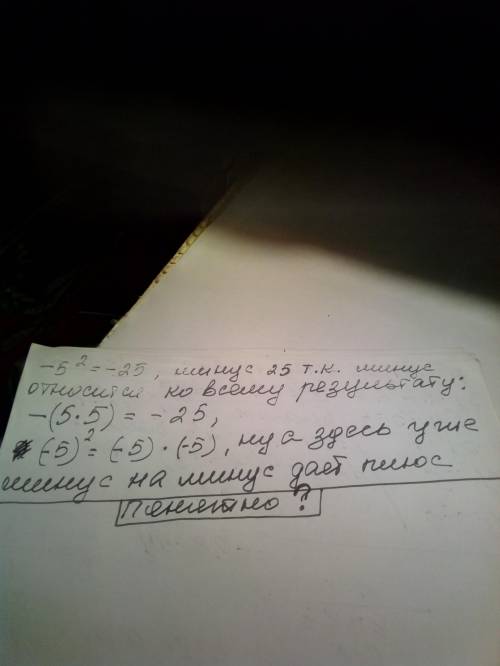 -5² = -25, минус 25 т.к. минус
относится ко всему результату:
-(5·5) = -25,
(-5)² = (-5)·(-5), ну а здесь уже
минус на минус даёт плюс
Понятно?